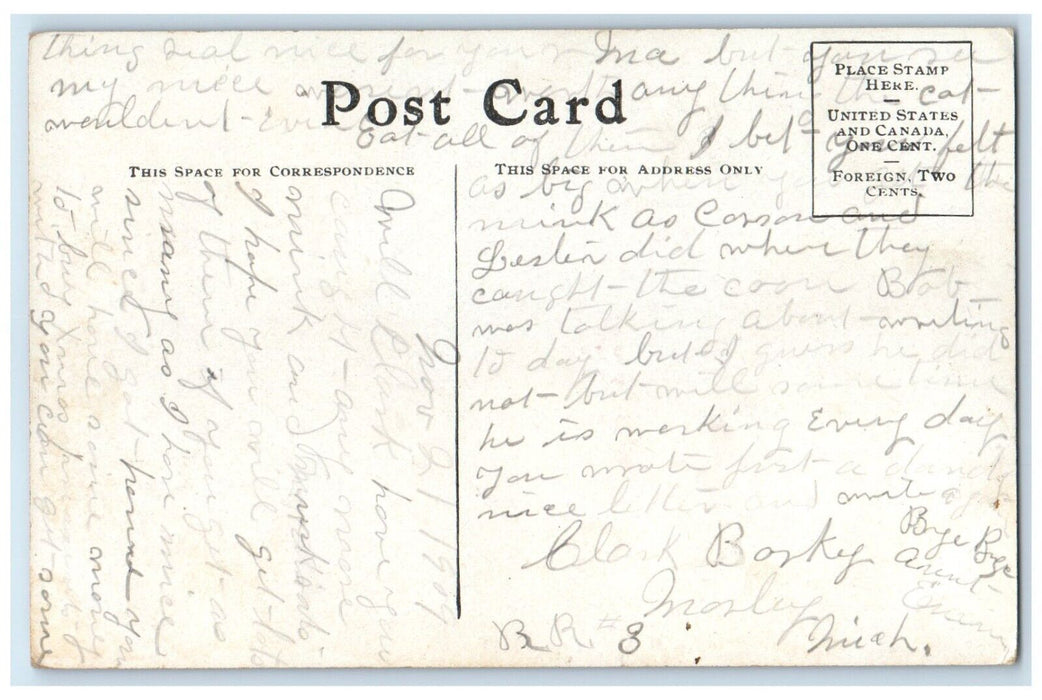 Nov 21 1909
Well Clark have you
caught any more
mink and
I hope you will get lots
of them if you get as
many as I have mice
since I got home you
will have some money
to buy Xmas
with you can get some
thing real nice for your Ma but you see
my mice wasent worth any thing the cat
wouldent Even
Eat all of them I bet you felt
as big when you the
mink as Carson and
Lester did when they
caught the coon Bob
was talking about writing
to day but I guess he did
not but will some time
he is working Every day
You wrote first a dandy
nice letter and write again
Bye Bye
Aunt
Clark Borkey
Morley
Mich.
R R # 3
Post Card
THIS SPACE FOR CORRESPONDENCE
THIS SPACE FOR ADDRESS ONLY
PLACE STAMP
HERE.
UNITED STATES
AND CANADA,
ONE CENT.
FOREIGN, TWO
CENTS.